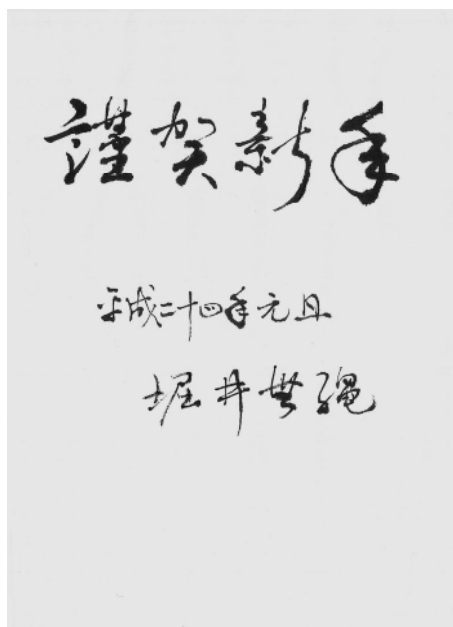 謹賀新年
平成二十四年元旦
堀井